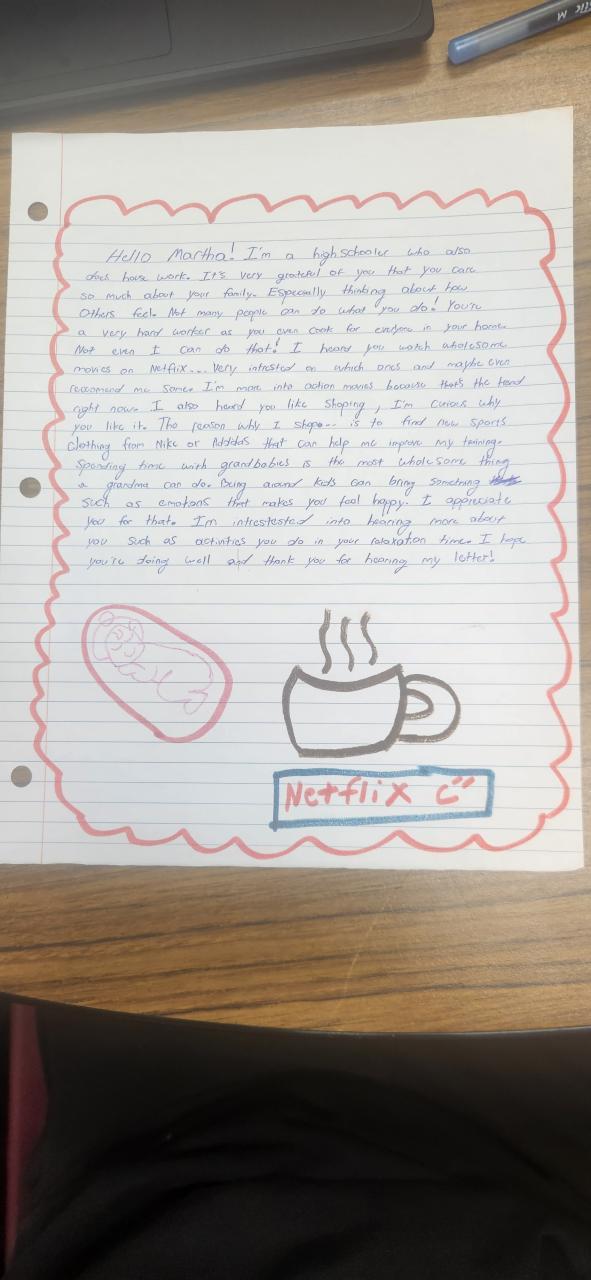 Hello Martha! I'm a highschooler who also
does house work. It's very grateful of you that you care
so much about your family. Especially thinking about how
Others feel. Not many people can do what you do! You're
a very hard worker as you even cook for everyone in your home.
Not even I can do that! I heard you watch wholesome
movies on Netflix... very intrested on which ones and maybe even
reccomend me some. I'm more into action movies because that's the trend
right now. I also heard you like Shoping, I'm curious why
you like it. The reason why I shope... is to find new sports
clothing from Nike or Adidas that can help me improve my training.
Spending time with grandbabies is the most wholesome thing
a grandma can do. Being around kids can bring something
such as emotions that makes you feel happy. I appreciate
you for that. I'm intrestested into hearing more about
you such as activities you do in your relaxation time. I hope
you're doing well and thank you for hearing my letter!
Netflix C"
M